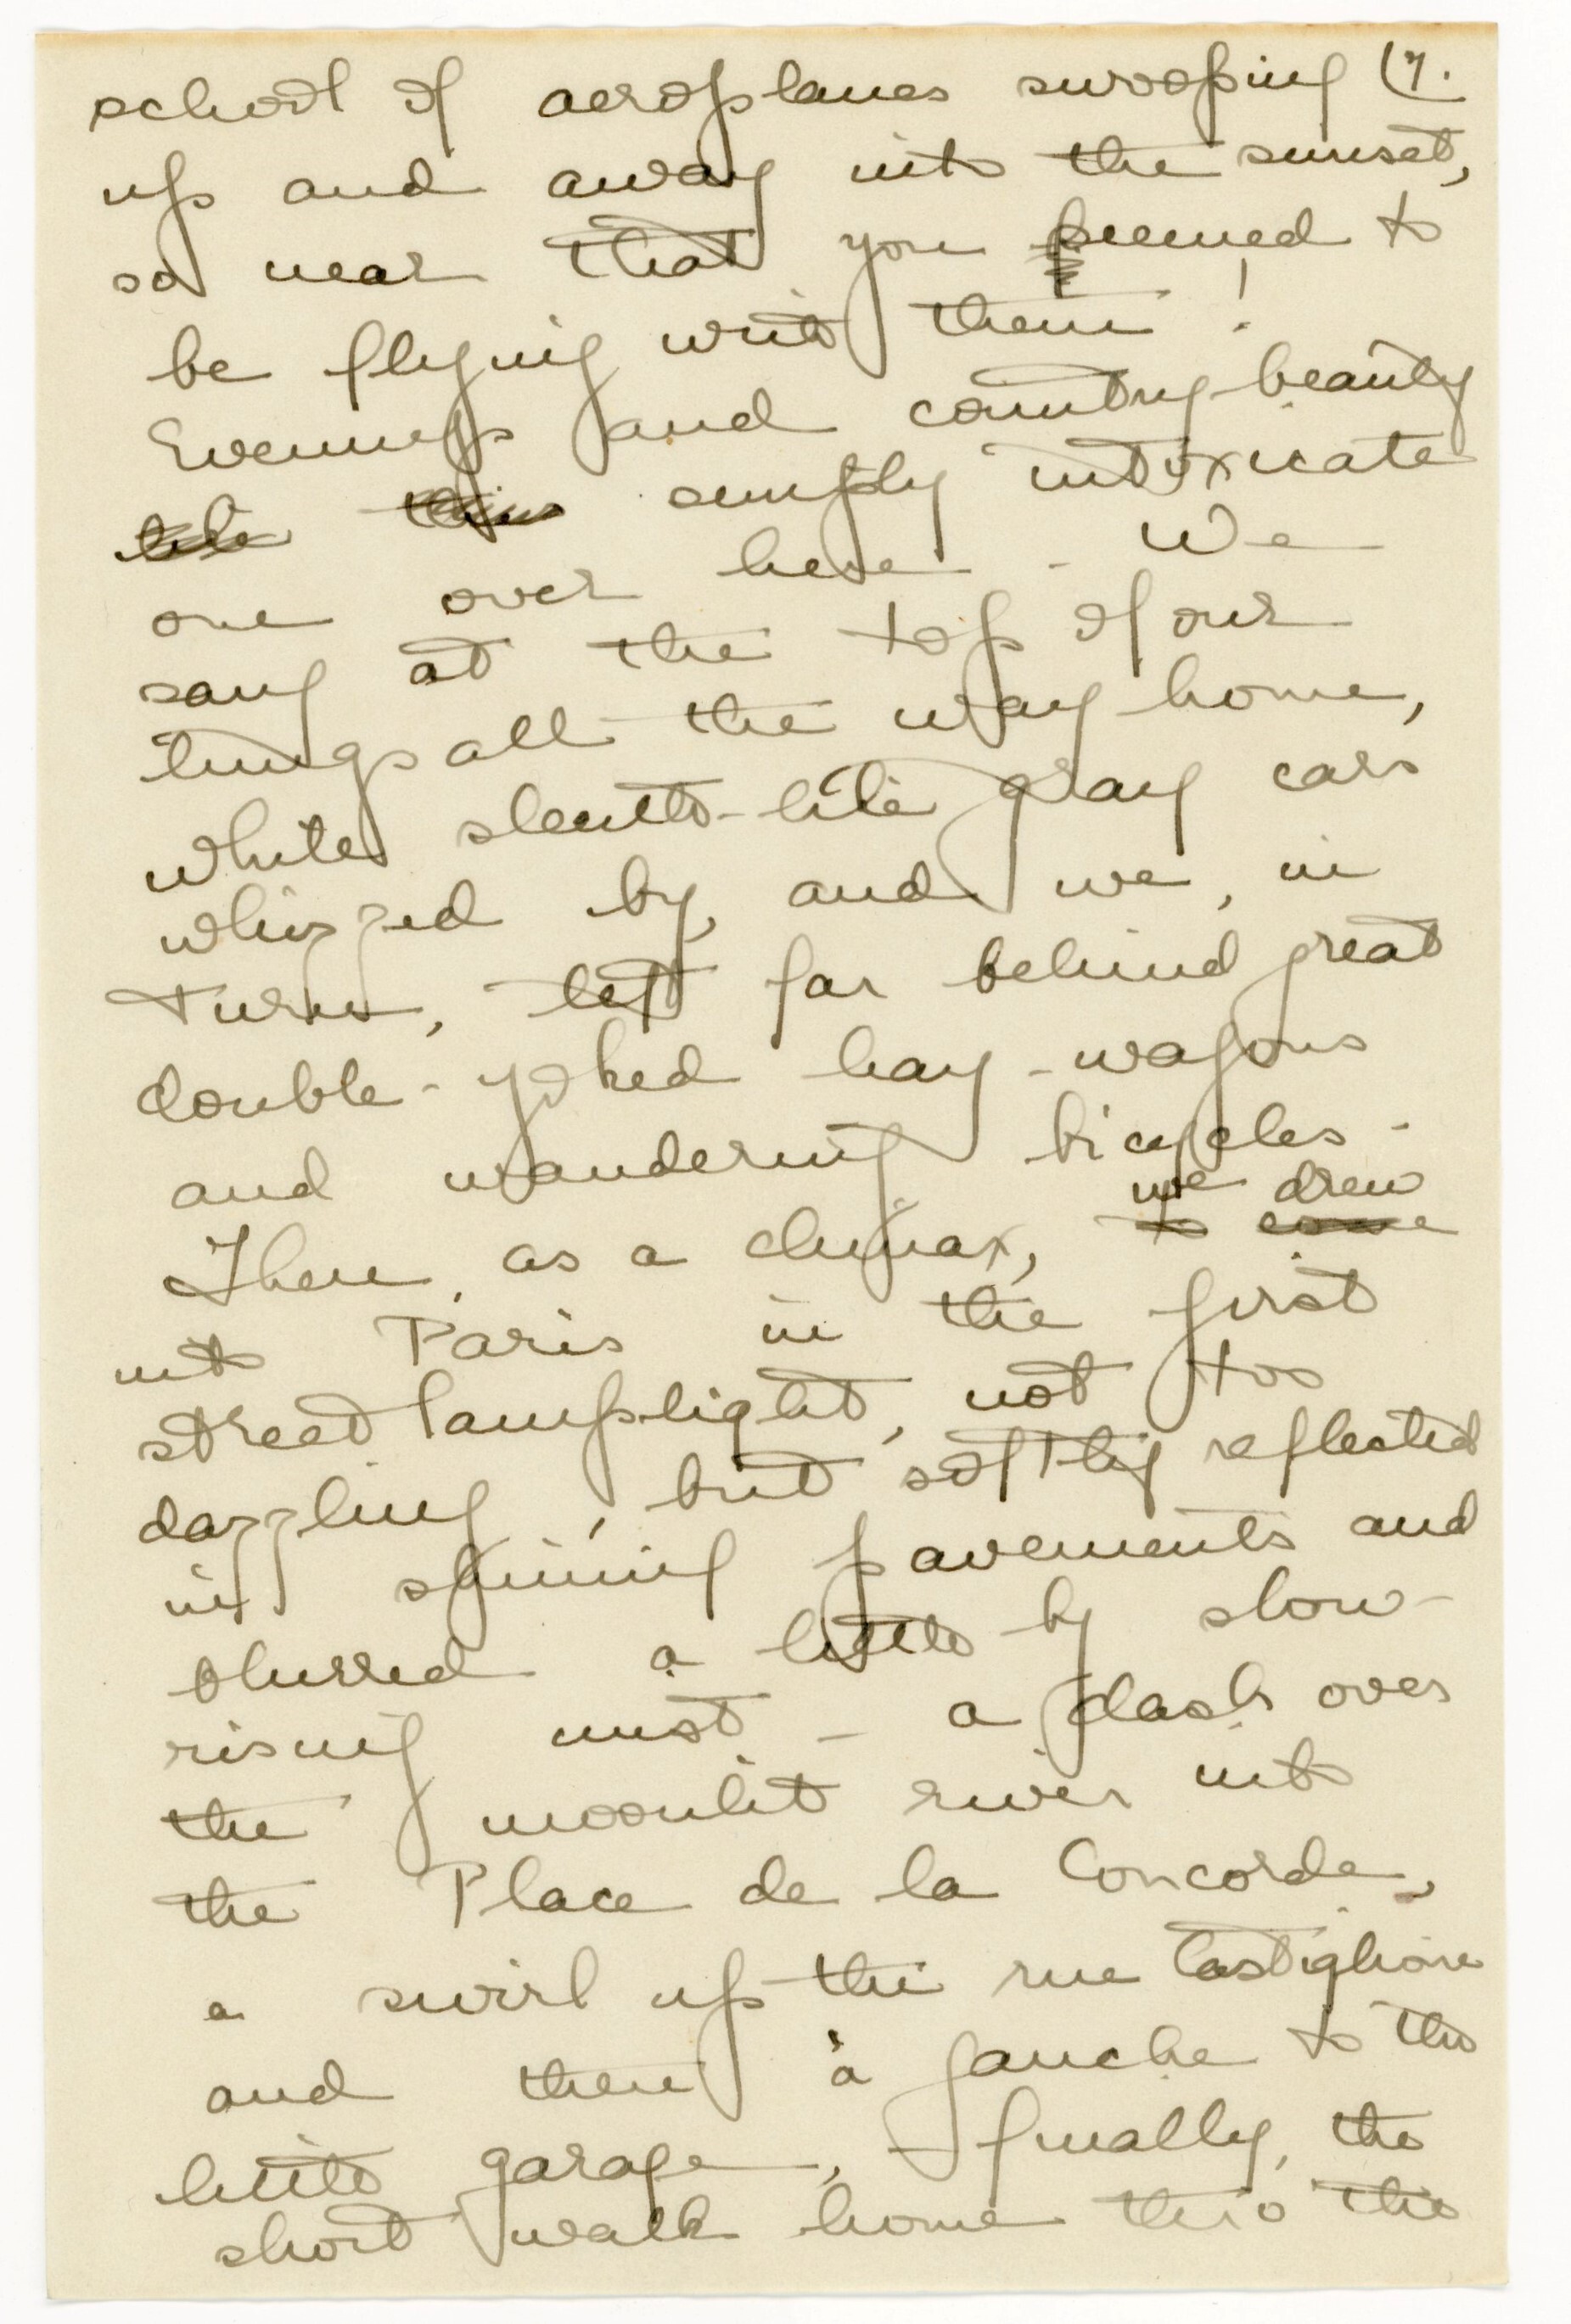 school of aeroplanes swooping (7.
up and away into the sunset,
so near that you seemed to
be flying with them!
Evenings and country-beauty
simply intoxicate
one over here - We
sang at the top of our
lungs all the way home,
while sleuth-like gray cars
whizzed by, and we, in
turn, left far behind great
double-yoked hay-wagons
and wandering bicycles -
we drew
Then, as a climax, to come
into Paris in the first
street lamplight, not too
dazzling, but softly reflected
in shining pavements and
blurred a little by slow-
rising mist - a dash over
the moonlit river into
the Place de la Concorde,
a swirl up the rue Castiglione
and then à gauche to the
little garage, & finally, the
short walk home thro the